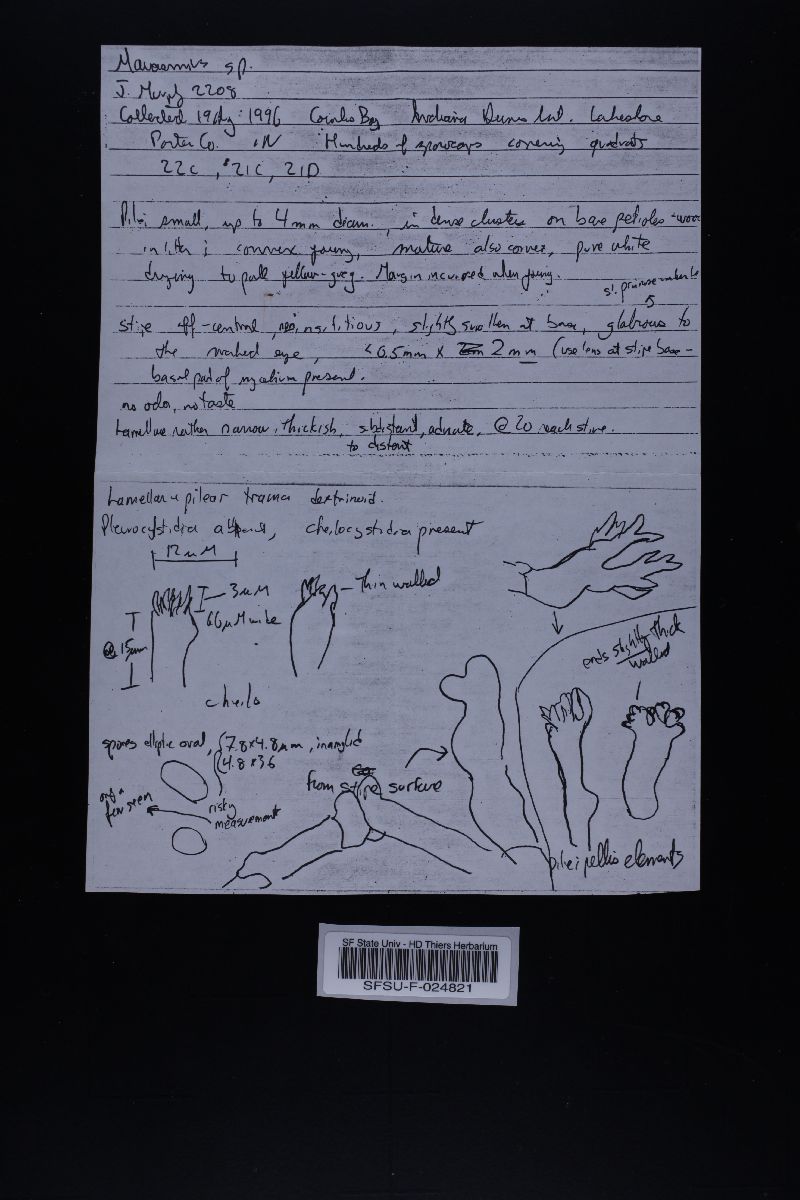 Marasmius sp.
J. Murphy 2208
Collected 19 Aug 1996 Cowles Bog Indiana Dunes Natl. Lakeshore
Porter Co. IN Hundreds of sporocarps covering quadrats
22C, 21C, 21D
Pilei small, up to 4 mm diam., in dense clusters on bare petioles - wood
in litter; convex young, mature also convex, pure white
drying to pale yellow-grey. Margin incurved when young.
sl. pruinose under lens
stipe off-central, insititious, slightly swollen at base, glabrous to
the naked eye, <0.5mm x 2mm (use lens at stipe base -
basal pad of mycelium present.
no odor, no taste
Lamellae rather narrow, thickish, subdistant, adnate, @ 20 reach stipe.
to distant
Lamellar & pilear trama dextrinoid.
Pleurocystidia absent, cheilocystidia present
12 µM
3µM
thin walled
66µM wide
@ 15µm
ends slightly thick
walled
cheilo
spores elliptic oval, 7.8 x 4.8µm, inamyloid
4.8 x 3.6
from stipe surface
only a
few seen
risky
measurement
pileipellis elements
SF State Univ - HD Thiers Herbarium
SFSU-F-024821